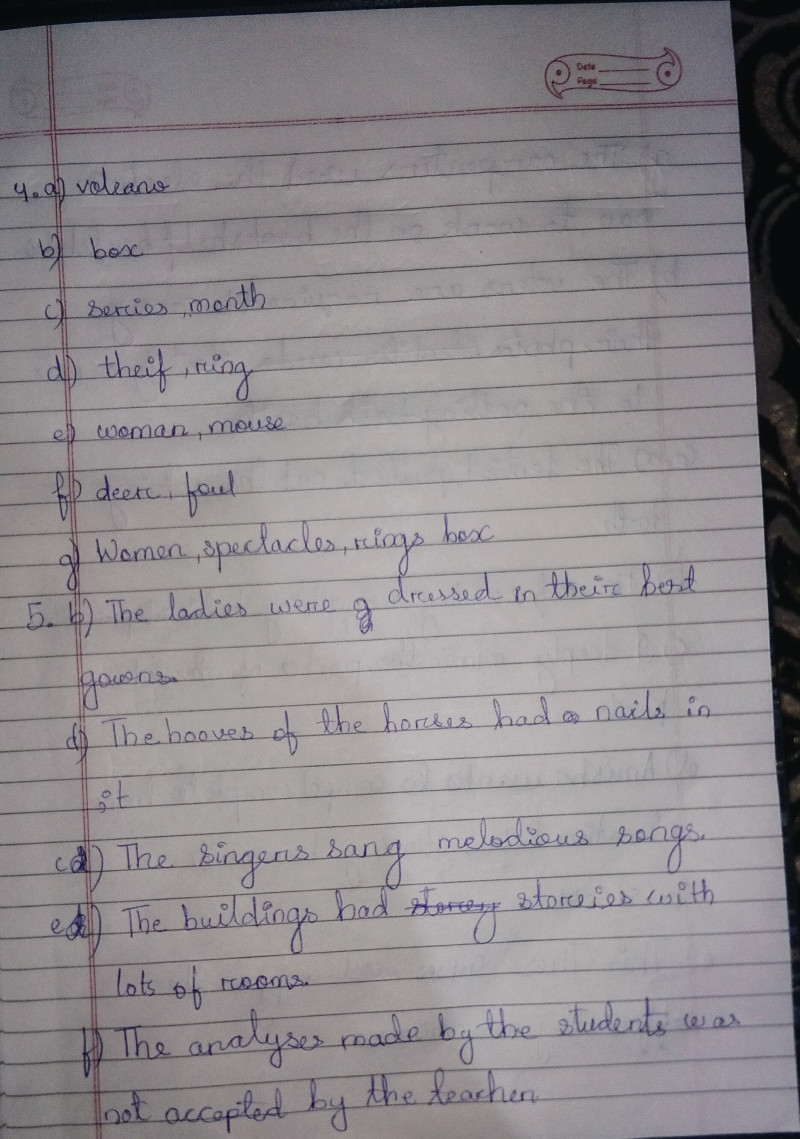 Date
Page
4. a) volcano
b) box
c) series, month
d) theif, ring
e) woman, mouse
f) deer, foul
g) Women, spectacles, rings box
5. b) The ladies were dressed in their best
gowns.
d) The hooves of the horses had nails in
it
c) The singers sang melodious songs.
e) The buildings had storey storeies with
lots of rooms.
f) The analyses made by the students was
not accepted by the teacher